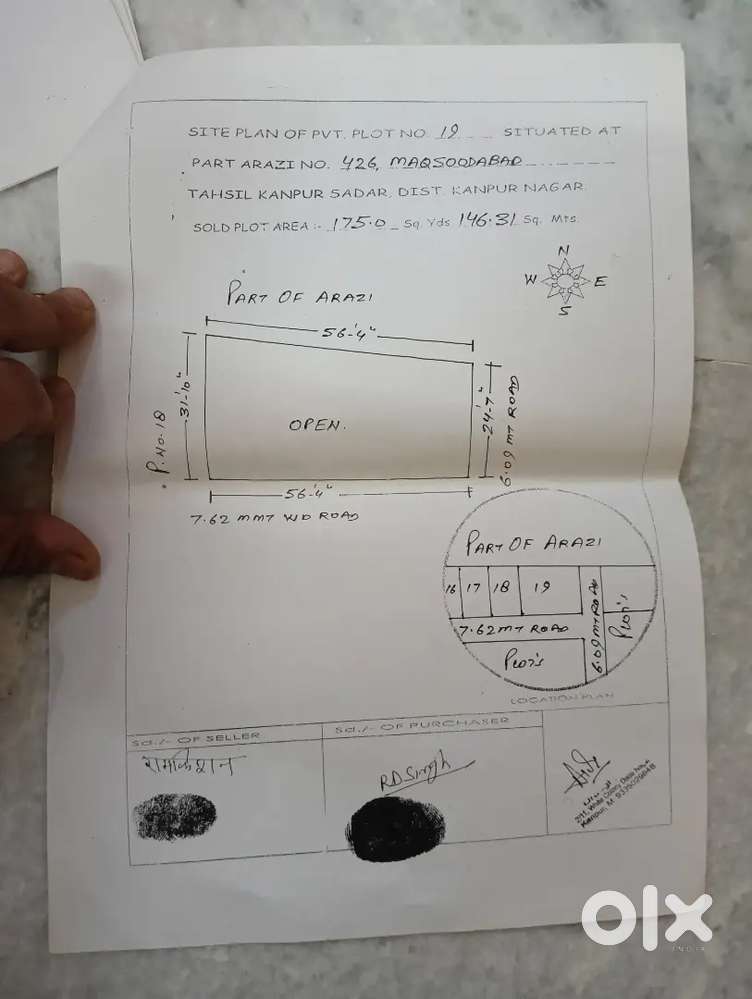 SITE PLAN OF PVT. PLOT NO. 19 SITUATED AT
PART ARAZI NO. 426, MAQSOODABAD
TAHSIL KANPUR SADAR, DIST. KANPUR NAGAR.
SOLD PLOT AREA :- 175.0 Sq. Yds 146.31 Sq. Mts.
N
W E
S
PART OF ARAZI
56'-4"
31'-10"
P. No. 18
OPEN.
24'-7"
6.09 MT ROAD
56'-4"
7.62 MMT WD ROAD
PART OF ARAZI
16 17 18 19
7.62 MT ROAD
6.09 MT ROAD
Plot's
Plot's
LOCATION PLAN
Sd./- OF SELLER
Sd./- OF PURCHASER
रामकिशन
RDSingh
Kanpur, M. 9335029648
olx
INDIA